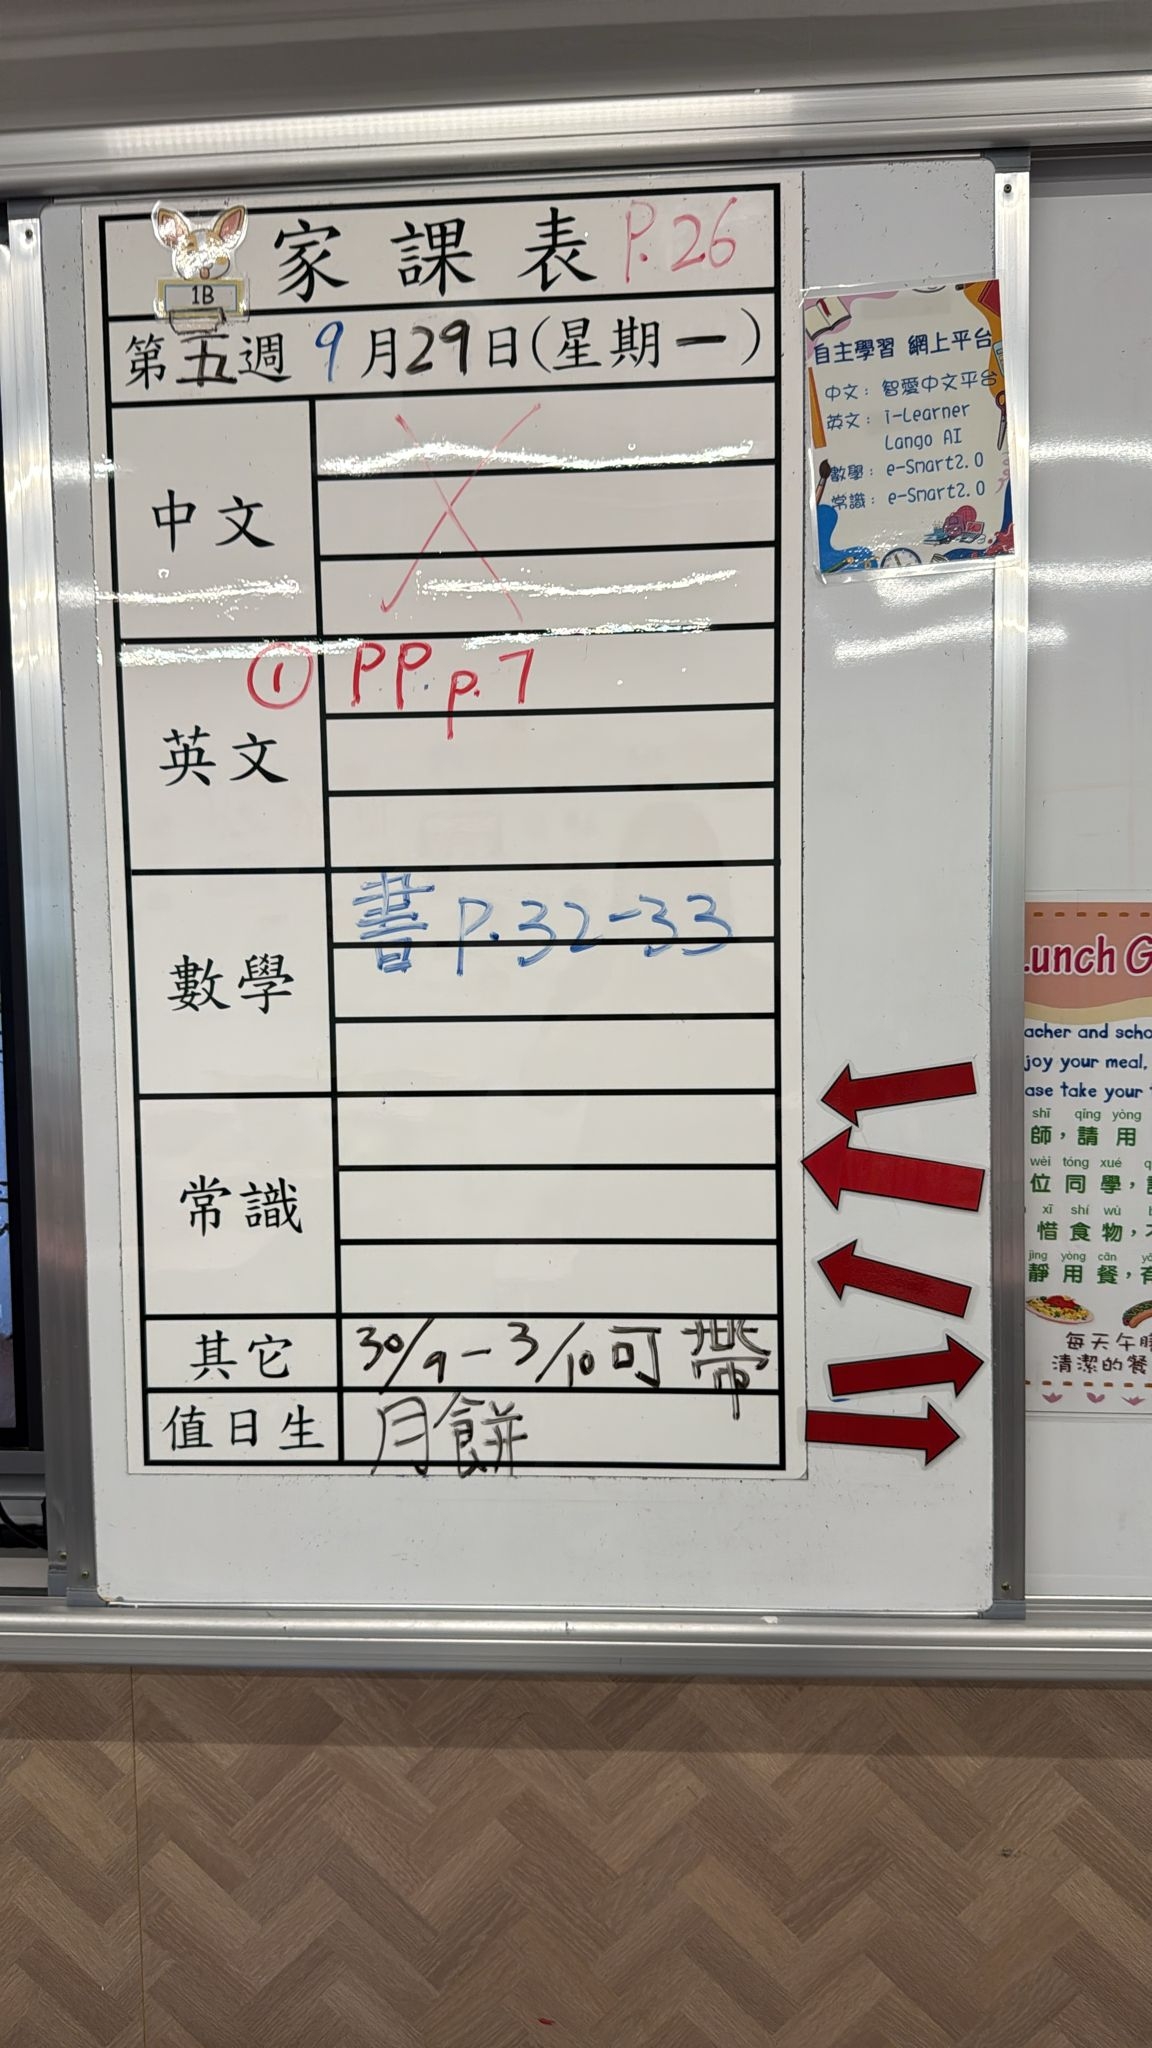 家課表 P.26
1B
第五週 9月29日(星期一)
中文
英文
① P.P. p.7
數學
書 P.32-33
常識
其它
30/9-3/10可帶
值日生
月餅
自主學習 網上平台
中文：智愛中文平台
英文：i-Learner
Lango AI
數學：e-Smart2.0
常識：e-Smart2.0
Lunch G
acher and scho
joy your meal,
ase take your
shī qǐng yòng
師，請用
wèi tóng xué
位同學，
xī shí wù
惜食物，
jìng yòng cān
靜用餐，有
每天午膳
清潔的餐